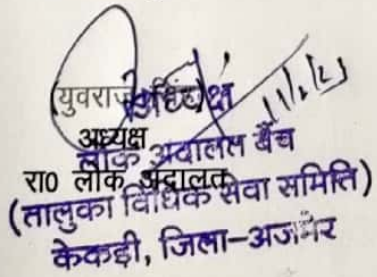 (युवराज
अध्यक्ष
अध्यक्ष
लोक अदालत बैंच
रा0 लोक अदालत
(तालुका विधिक सेवा समिति)
केकड़ी, जिला-अजमेर